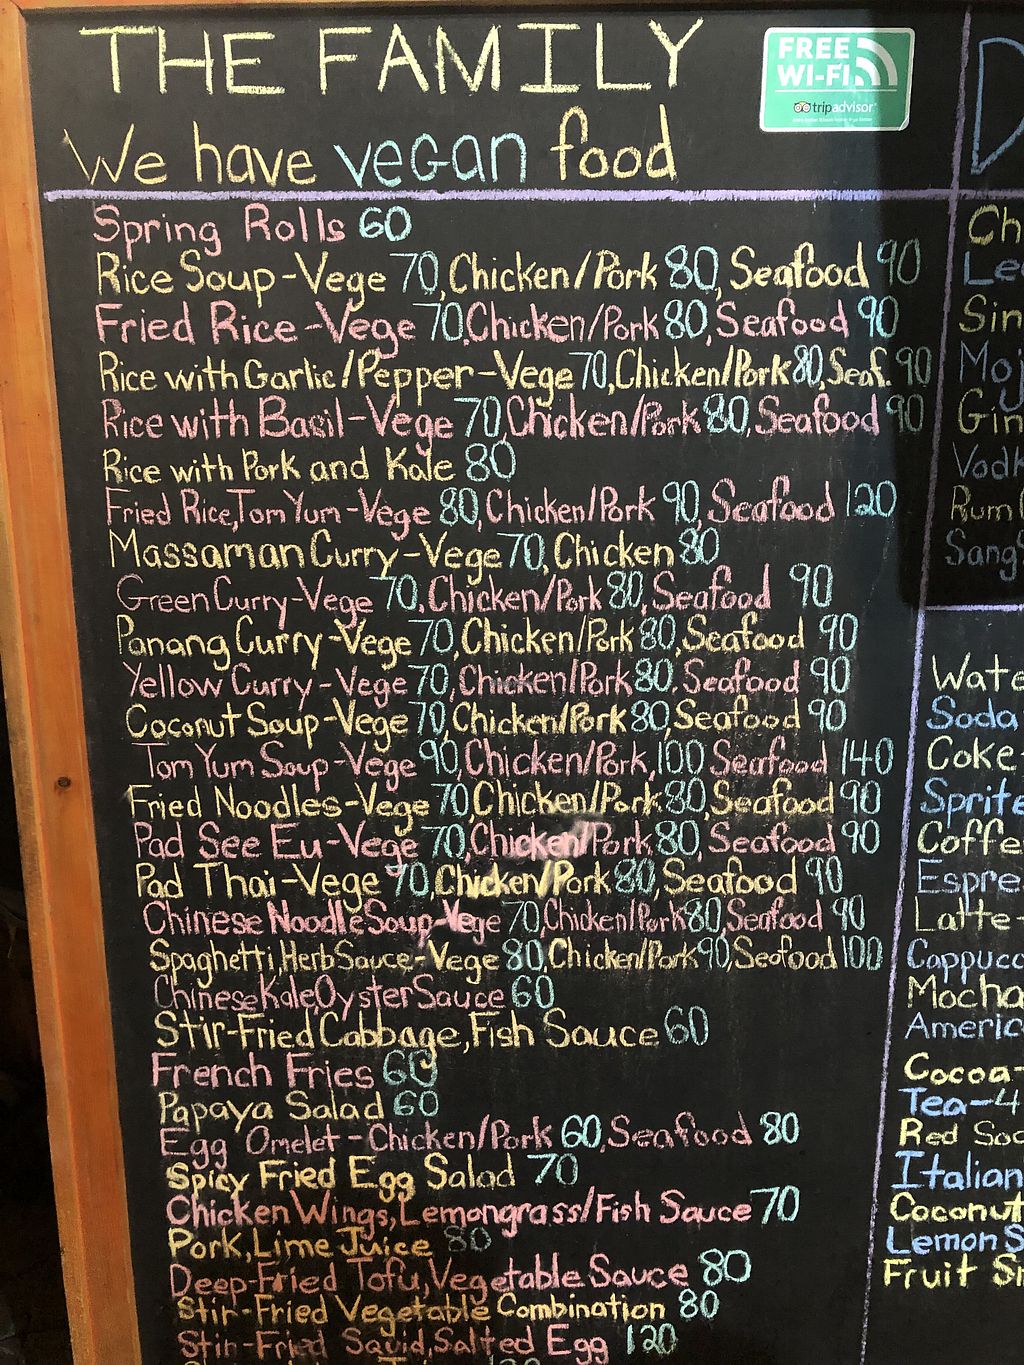 THE FAMILY
We have vegan food
FREE
WI-FI
tripadvisor
Spring Rolls 60
Rice Soup-Vege 70, Chicken/Pork 80, Seafood 90
Fried Rice-Vege 70, Chicken/Pork 80, Seafood 90
Rice with Garlic/Pepper-Vege 70, Chicken/Pork 80, Seaf. 90
Rice with Basil-Vege 70, Chicken/Pork 80, Seafood 90
Rice with Pork and Kale 80
Fried Rice, Tom Yum-Vege 80, Chicken/Pork 90, Seafood 120
Massaman Curry-Vege 70, Chicken 80
Green Curry-Vege 70, Chicken/Pork 80, Seafood 90
Panang Curry-Vege 70, Chicken/Pork 80, Seafood 90
Yellow Curry-Vege 70, Chicken/Pork 80, Seafood 90
Coconut Soup-Vege 70, Chicken/Pork 80, Seafood 90
Tom Yum Soup-Vege 90, Chicken/Pork, 100 Seafood 140
Fried Noodles-Vege 70, Chicken/Pork 80, Seafood 90
Pad See Eu-Vege 70, Chicken/Pork 80, Seafood 90
Pad Thai-Vege 70, Chicken/Pork 80, Seafood 90
Chinese Noodle Soup-Vege 70, Chicken/Pork 80, Seafood 90
Spaghetti, Herb Sauce-Vege 80, Chicken/Pork 90, Seafood 100
Chinese Kale, Oyster Sauce 60
Stir-Fried Cabbage, Fish Sauce 60
French Fries 60
Papaya Salad 60
Egg Omelet-Chicken/Pork 60, Seafood 80
Spicy Fried Egg Salad 70
Chicken Wings, Lemongrass/Fish Sauce 70
Pork, Lime Juice 80
Deep-Fried Tofu, Vegetable Sauce 80
Stir-Fried Vegetable Combination 80
Stir-Fried Squid, Salted Egg 120
D
Ch
Le
Sin
Moj
Gin
Vodk
Rum
Sang
Wate
Soda
Coke-
Sprite
Coffe
Espre
Latte-
Cappucc
Mocha
Americ
Cocoa-
Tea-4
Red Soc
Italian
Coconut
Lemon S
Fruit S